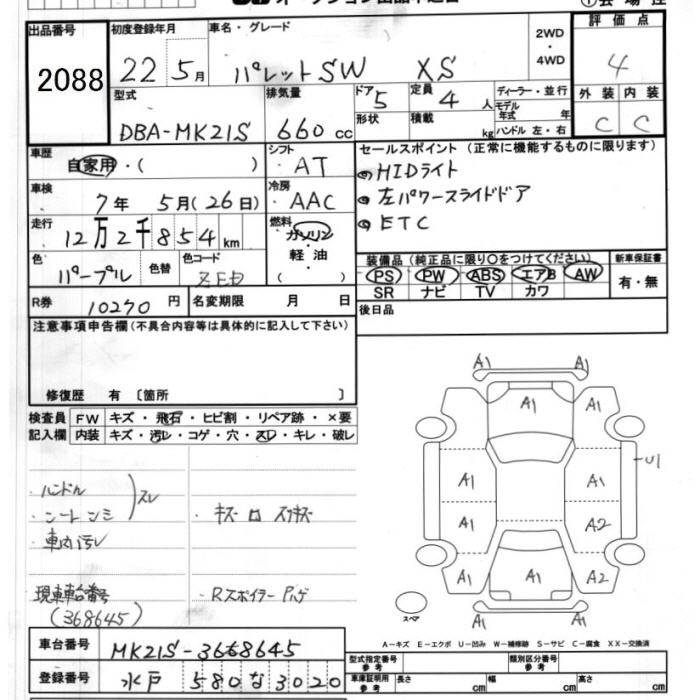 出品番号 初度登録年月 車名・グレード 2WD・4WD 評価点
2088 22 5月 パレットSW XS 4
型式 排気量 ドア 5 定員 4 人 ディーラー・並行 外装 内装
DBA-MK21S 660 cc 形状 積載 kg モデル年式 年 ハンドル 左・右 C C
車歴 自家用・( ) シフト AT セールスポイント (正常に機能するものに限ります)
HIDライト
車検 7年 5月(26日) 冷房 AAC 左パワースライドドア
走行 12万2千854km 燃料 ガソリン・軽油・( ) ETC
色 パープル 色替 色コード 装備品 (純正品に限り○をつけてください) 新車保証書
PS PW ABS エアB AW 有・無
SR ナビ TV カワ
R券 10270円 名変期限 月 日 後日品
注意事項申告欄(不具合内容等は具体的に記入して下さい)
修復歴 有 〔箇所 〕
検査員 FW キズ・飛石・ヒビ割・リペア跡・×要
記入欄 内装 キズ・汚レ・コゲ・穴・スレ・キレ・破レ
A1 A1
A1 A1 A1
・ハンドル スレ
A1 A1 U1
A1 A2
・車内汚レ
A1 A1 A2
現車車台番号 ・Rスポイラー ハゲ
(368645)
A1 A1
スペア
A-キズ E-エクボ U-凹み W-補修跡 S-サビ C-腐食 XX-交換済
車台番号 MK21S-368645 型式指定番号 参考 類別区分番号 参考
登録番号 水戸 580な3020 車庫証明用 参考 長さ cm 幅 cm 高さ cm